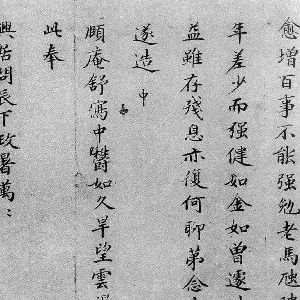 愈增百事不能强勉老馬
年差少而强健如金如曾遂
益雖存殘息亦復何聊苐念
遂造
中
頤庵舒寫中欝如久旱望雲
此奉
興居問長下政署萬〻